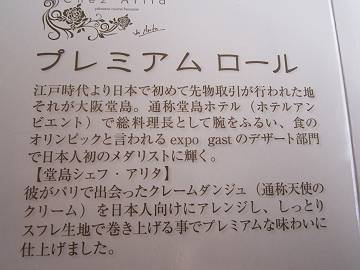 Chez Arita
プレミアム ロール
江戸時代より日本で初めて先物取引が行われた地
それが大阪堂島。通称堂島ホテル（ホテルアン
ビエント）で総料理長として腕をふるい、食の
オリンピックと言われる expo gast のデザート部門
で日本人初のメダリストに輝く。
【堂島シェフ・アリタ】
彼がパリで出会ったクレームダンジュ（通称天使の
クリーム）を日本人向けにアレンジし、しっとり
スフレ生地で巻き上げる事でプレミアムな味わいに
仕上げました。